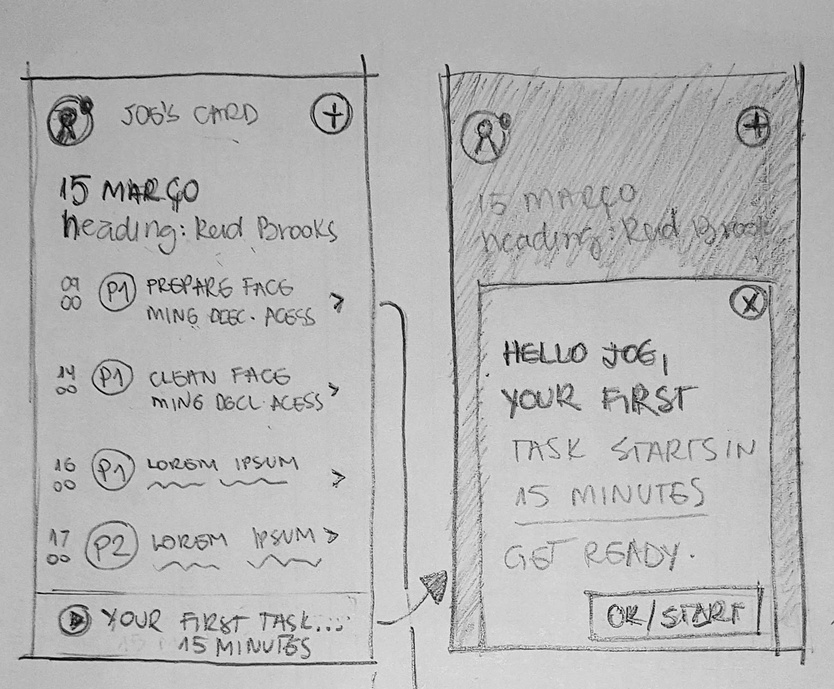 JOE'S CARD
15 MARÇO
heading: Reid Brooks
09
00
P1
PREPARE FACE
MING DECL. ACESS
14
00
P1
CLEAN FACE
MING DECL. ACESS
16
00
P1
LOREM IPSUM
17
00
P2
LOREM IPSUM
YOUR FIRST TASK...
15 MINUTES
15 MARÇO
heading: Reid Brook
HELLO JOE,
YOUR FIRST
TASK STARTS IN
15 MINUTES
GET READY.
OK/START